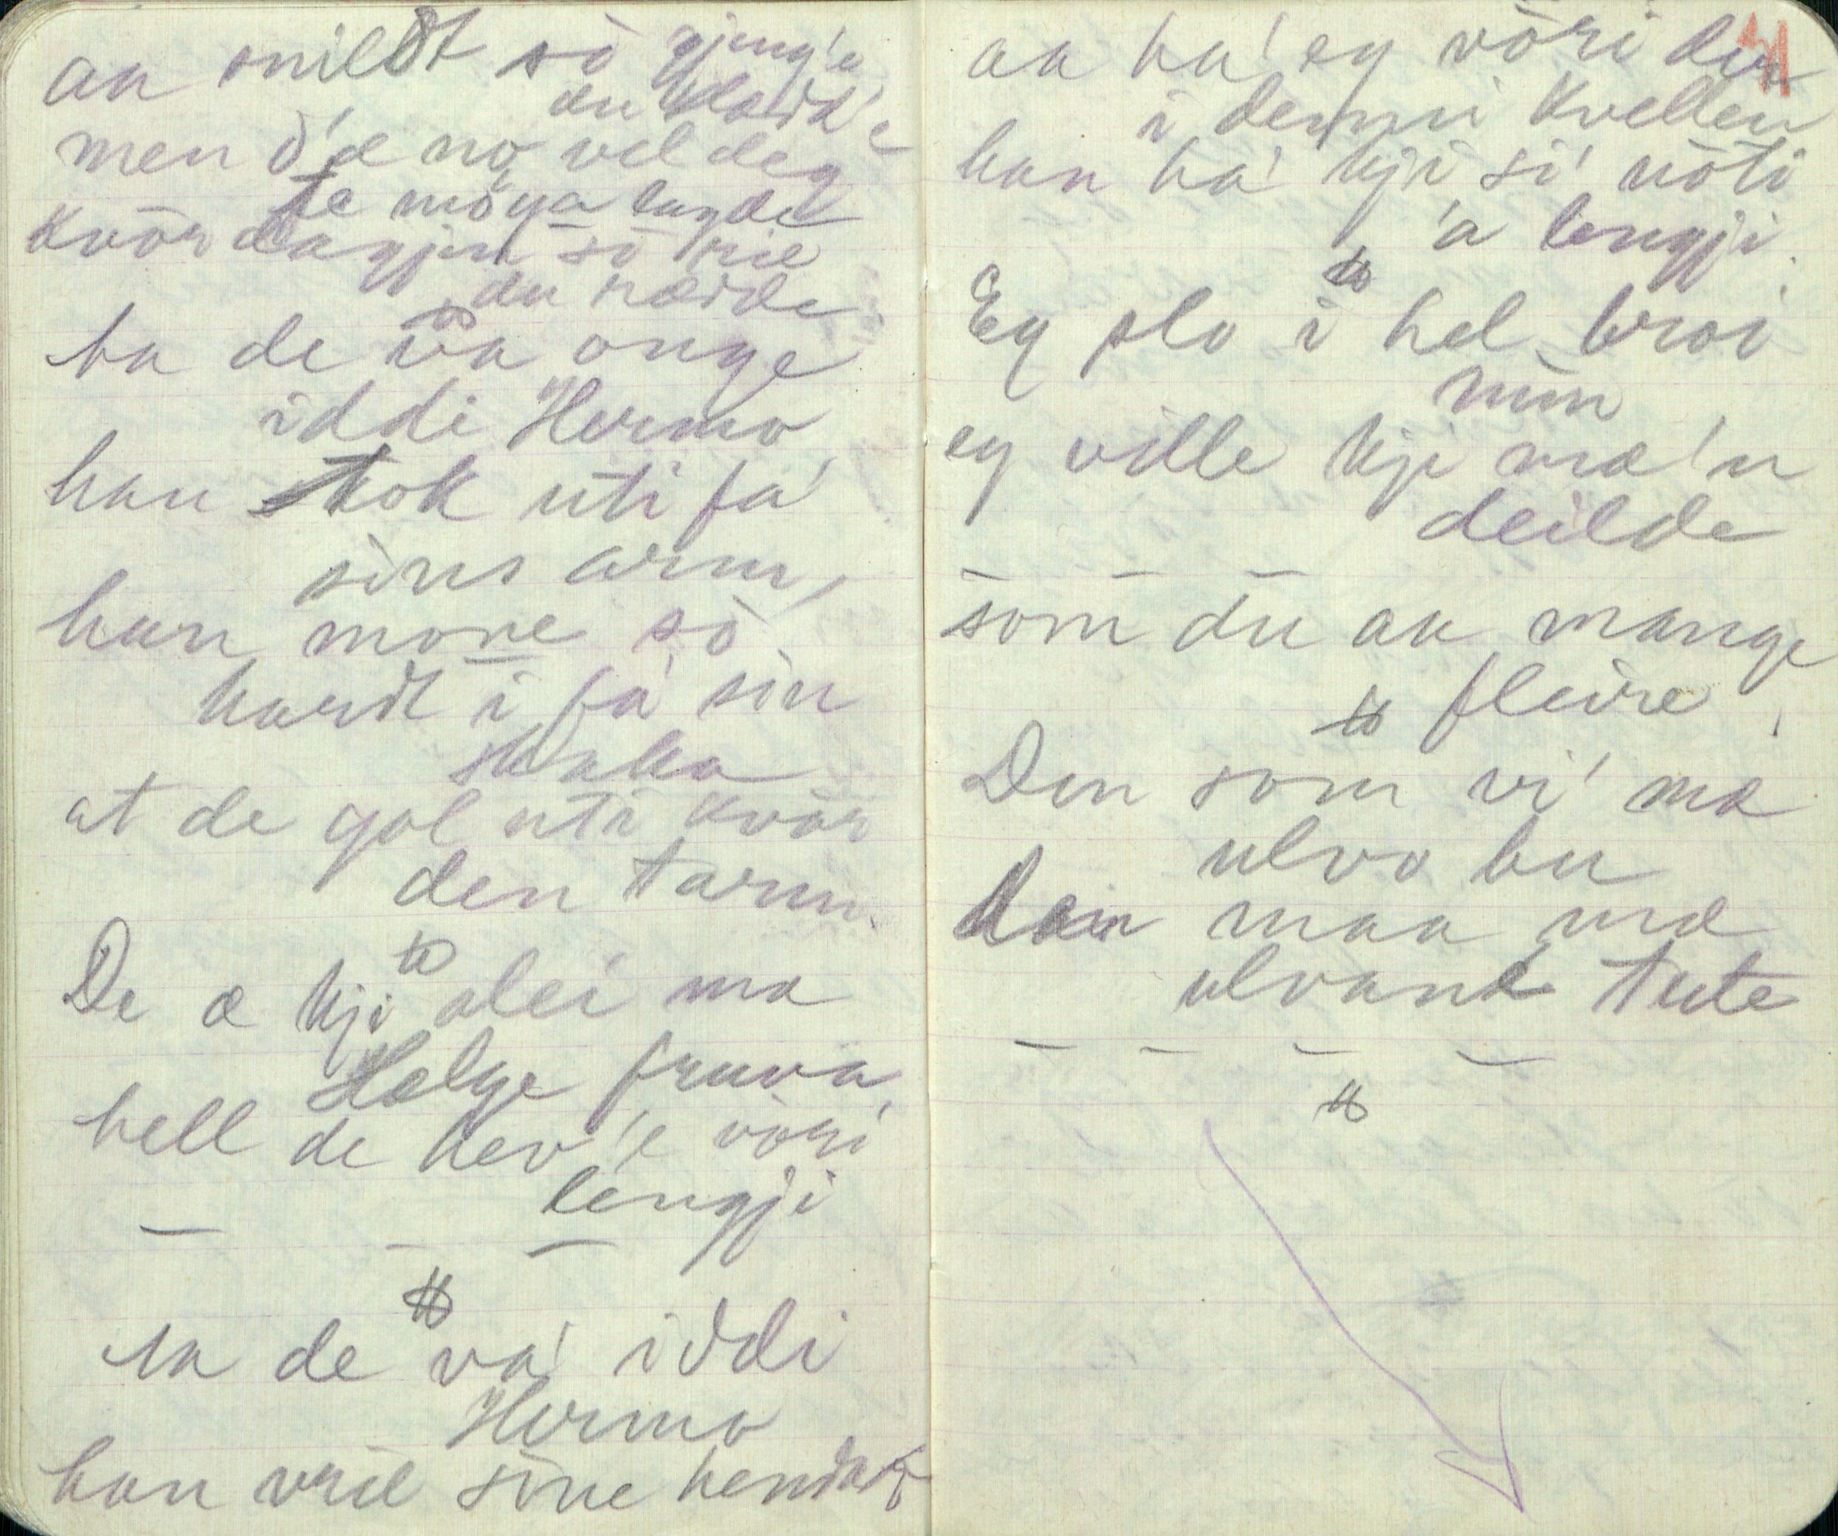 aa snildt so gjeng'e
du klard'e
men d'æ no vel deg
te möya lagde
kvör dagjen so rie
du rædde
ta de va onge
iddi Hermo
han tok uti fa'
sins arm,
han more so
hardt i fa' sin
skaka
at de gol uti kvör
den tarm.
De æ kji alei ma
Helge fruva,
hell de hev'e vöri
lengji
ta de va' iddi
Hermo
han vrie sine hendar
41
aa ha' eg vöri der
i denni kvellen
han ha' kji si' nöti
'a lengji.
Eg slo i hel broi
min
eg ville kji mæ'n
deilde
som du aa mange
fleire
Den som vi' mæ
ulvo bu
dæn maa mæ
ulvane tute